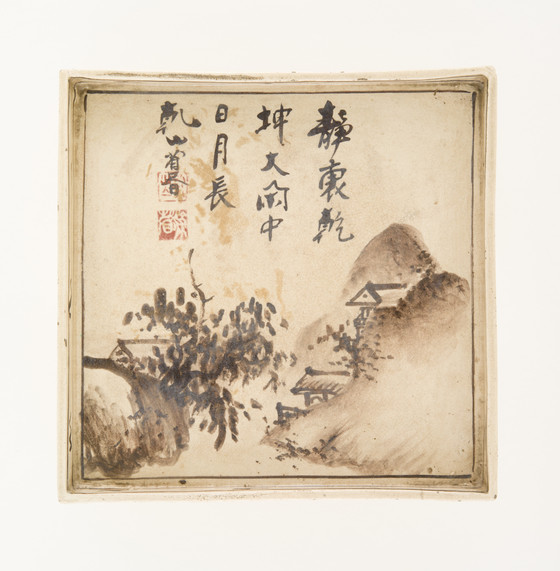 靜裏乾
坤大閑中
日月長
乾山省書